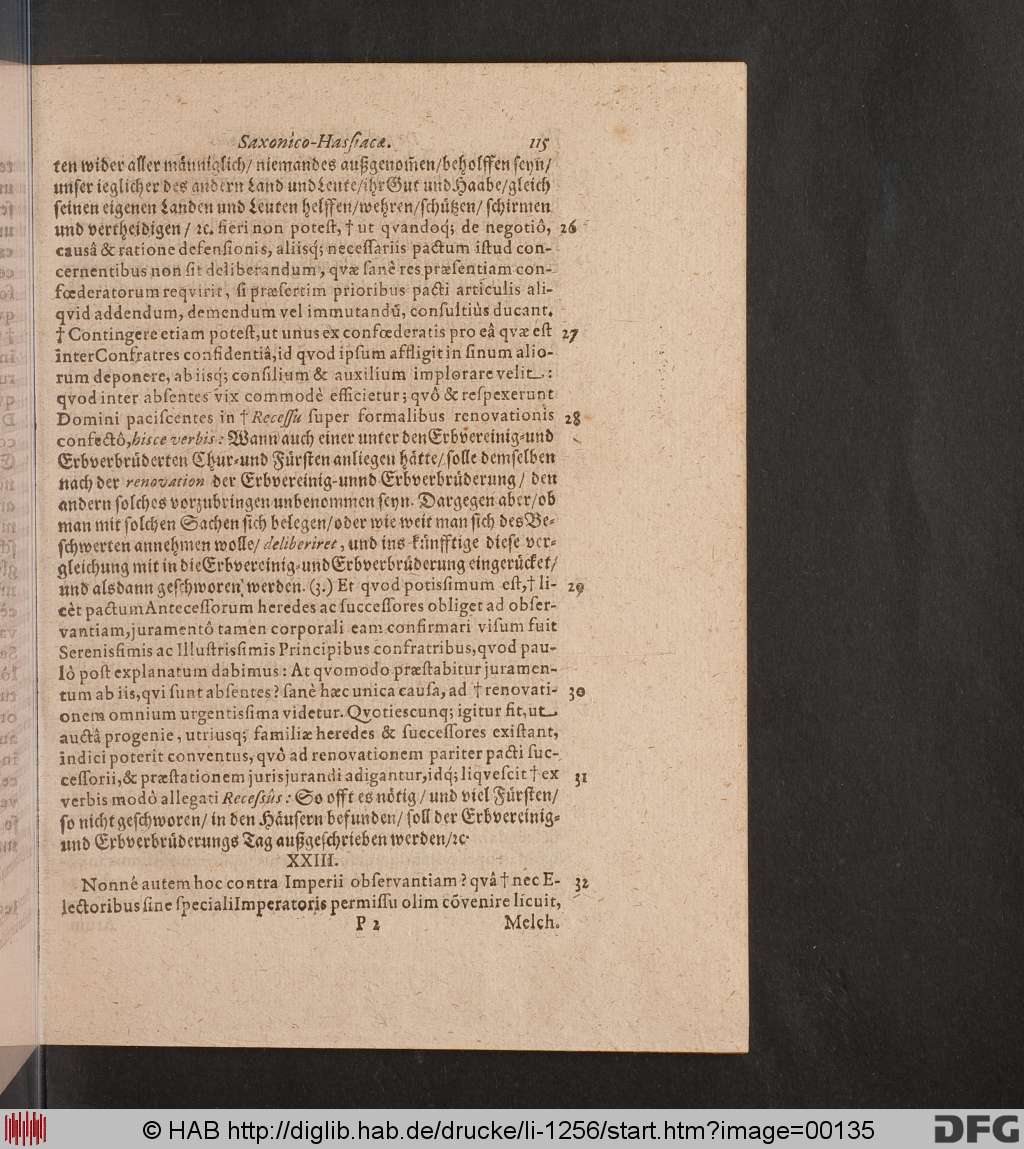 Saxonico-Hassiacæ. 115
ten wider aller männiglich/ niemandes außgenom̃en/beholffen seyn/
unser ieglicher des andern Land und Leute/ihr Gut und Haabe/gleich
seinen eigenen Landen und Leuten helffen/wehren/schützen/ schirmen
und vertheidigen/ ꝛc. fieri non potest, † ut qvandoq; de negotiô, 26
causâ & ratione defensionis, aliisq; necessariis pactum istud con-
cernentibus non sit deliberandum, qvæ sanè res præsentiam con-
fœderatorum reqvirit, si præsertim prioribus pacti articulis ali-
qvid addendum, demendum vel immutandũ, consultiùs ducant.
† Contingere etiam potest, ut unus ex confœderatis pro eâ qvæ est 27
inter Confratres confidentiâ, id qvod ipsum affligit in sinum alio-
rum deponere, ab iisq; consilium & auxilium implorare velit:
qvod inter absentes vix commodè efficietur; qvô & respexerunt
Domini paciscentes in † Recessu super formalibus renovationis 28
confectô, hisce verbis: Wann auch einer unter den Erbvereinig-und
Erbverbrüderten Chur-und Fürsten anliegen hätte/ solle demselben
nach der renovation der Erbvereinig-unnd Erbverbrüderung/ den
andern solches vorzubringen unbenommen seyn. Dargegen aber/ob
man mit solchen Sachen sich belegen/oder wie weit man sich des Be-
schwerten annehmen wolle/ deliberiret, und ins künfftige diese ver-
gleichung mit in die Erbvereinig-und Erbverbrüderung eingerücket/
und alsdann geschworen werden. (3.) Et qvod potissimum est, † li- 29
cèt pactum Antecessorum heredes ac successores obliget ad obser-
vantiam, juramentô tamen corporali eam confirmari visum fuit
Serenissimis ac Illustrissimis Principibus confratribus, qvod pau-
lò post explanatum dabimus: At qvomodo præstabitur juramen-
tum ab iis, qvi sunt absentes? sanè hæc unica causa, ad † renovati- 30
onem omnium urgentissima videtur. Qvotiescunq; igitur fit, ut
auctâ progenie, utriusq; familiæ heredes & successores existant,
indici poterit conventus, qvô ad renovationem pariter pacti suc-
cessorii, & præstationem jurisjurandi adigantur, idq́; liqvescit † ex 31
verbis modò allegati Recessûs: So offt es nötig/ und viel Fürsten/
so nicht geschworen/ in den Häusern befunden/ soll der Erbvereinig-
und Erbverbrüderungs Tag außgeschrieben werden/ꝛc.
XXIII.
Nonnè autem hoc contra Imperii observantiam? qvâ † nec E- 32
lectoribus sine speciali Imperatoris permissu olim cõvenire licuit,
P 2 Melch.
© HAB http://diglib.hab.de/drucke/li-1256/start.htm?image=00135
DFG